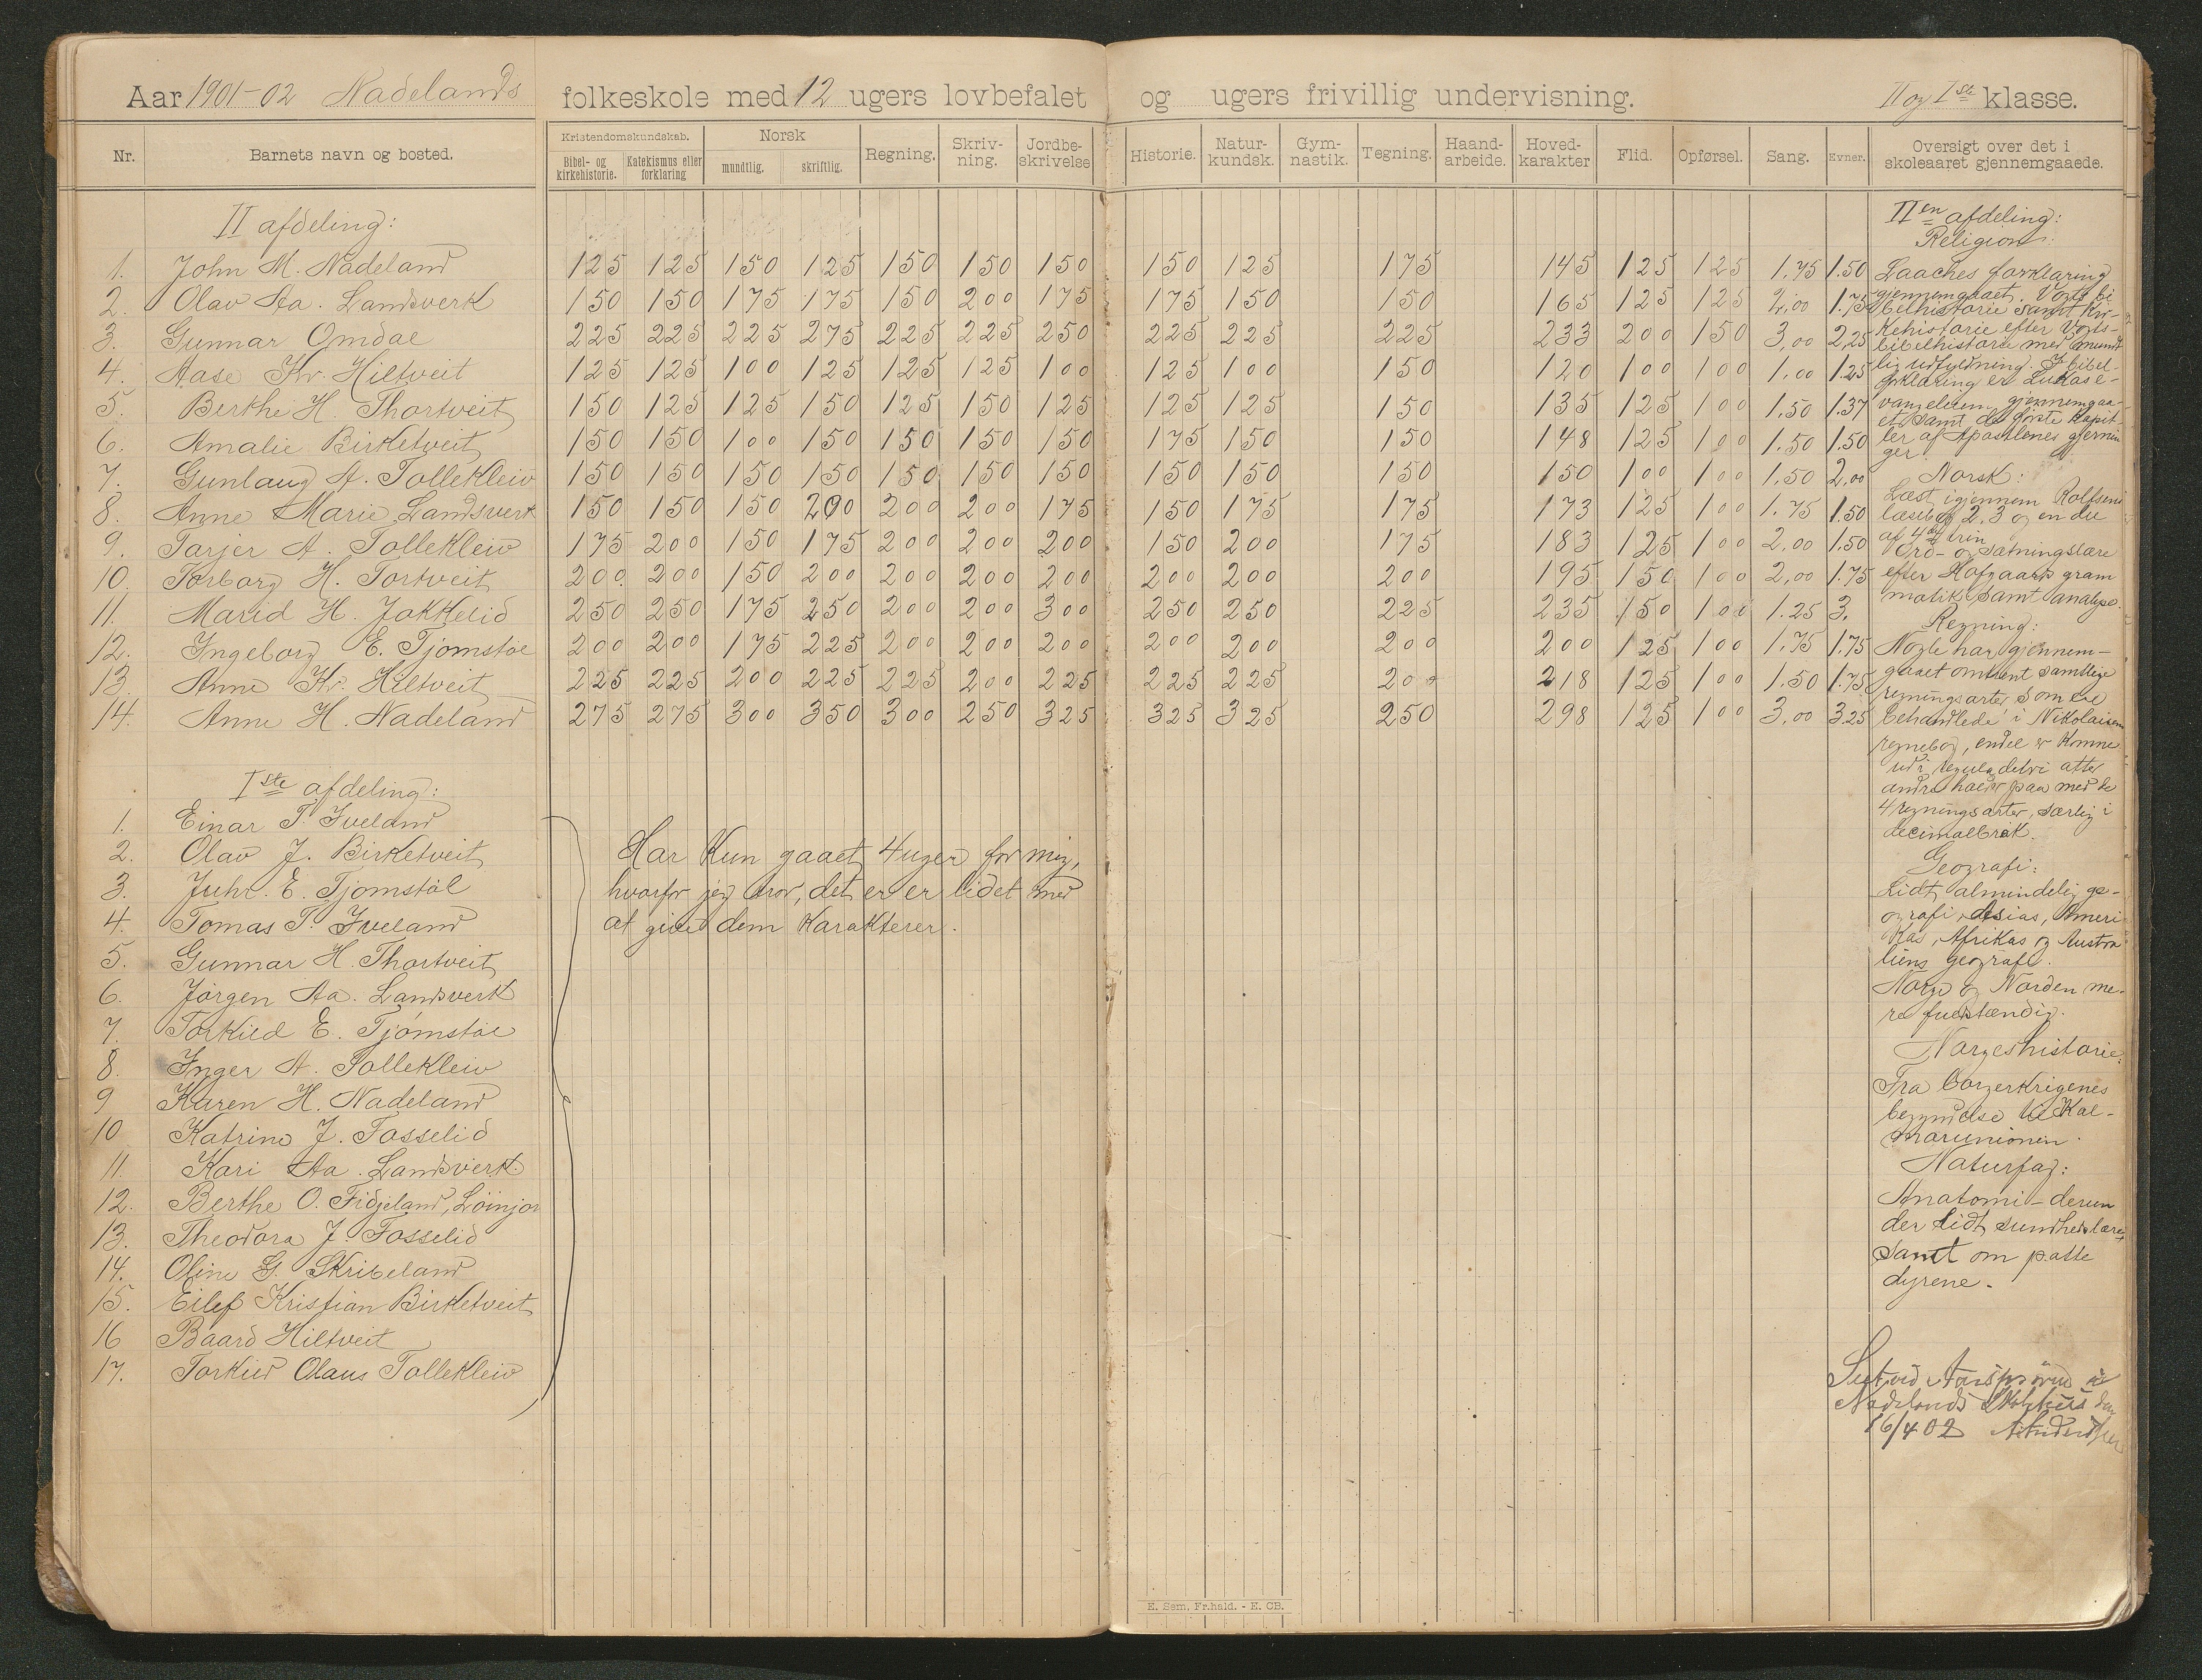 Aar 1901-02 Nadelands folkeskole med 12 ugers lovbefalet og ugers frivillig undervisning. II og Iste klasse.
Nr. Barnets navn og bosted. Kristendomskundskab. Bibel- og kirkehistorie. Katekismus eller forklaring Norsk mundtlig. skriftlig. Regning. Skriv-ning. Jordbe-skrivelse Historie. Natur-kundsk. Gym-nastik. Tegning. Haand-arbeide. Hoved-karakter Flid. Opførsel. Sang. Evner. Oversigt over det i skoleaaret gjennemgaaede.
II afdeling:
1. John M. Nadeland 125 125 150 125 150 150 150 150 125 175 145 125 125 1.75 1.50
2. Olav Aa. Landsverk 150 150 175 175 150 200 175 175 150 150 165 125 125 2,00 1.75
3. Gunnar Omdal 225 225 225 275 225 225 250 225 225 225 233 200 150 3,00 2,25
4. Aase Kr. Hiltveit 125 125 100 125 125 125 100 125 100 150 120 100 100 1.00 1.25
5. Berthe H. Thortveit 150 125 125 150 125 150 125 125 125 150 135 125 100 1.50 1.37
6. Amalie Birketveit 150 150 100 150 150 150 150 175 150 150 148 125 100 1.50 1.50
7. Gunlaug A. Tollekleiv 150 150 150 150 150 150 150 150 150 150 150 100 100 1.50 2,00
8. Anne Marie Landsverk 150 150 150 200 200 200 175 150 175 175 173 125 100 1.75 1.50
9. Tarjer A. Tollekleiv 175 200 150 175 200 200 200 150 200 175 183 125 100 2,00 1.50
10. Torborg H. Tortveit 200 200 150 200 200 200 200 200 200 200 195 150 100 2,00 1.75
11. Marid H. Jokkelid 250 250 175 250 200 200 300 250 250 225 235 150 100 1.25 3.
12. Ingeborg E. Tjomstøl 200 200 175 225 200 200 200 200 200 200 200 125 100 1.75 1.75
13. Anne Kr. Hiltveit 225 225 200 225 225 200 225 225 225 200 218 125 100 1.50 1.75
14. Anne H. Nadeland 275 275 300 350 300 250 325 325 325 250 298 125 100 3,00 3.25
Iste afdeling:
1. Einar T. Iveland
2. Olav J. Birketveit
3. Juhr. E. Tjomstøl
4. Tomas T. Iveland
5. Gunnar H. Thortveit
6. Jørgen Aa. Landsverk
7. Torkild E. Tjømstøl
8. Inger A. Tollekleiv
9 Karen H. Nadeland
10 Katrine J. Fosselid
11. Kari Aa. Landsverk
12. Berthe O. Fidjeland,
13. Theodora J. Fosselid
14. Oline G. Skribeland
15. Eilef Kristian Birketveit
16 Baard Hiltveit
17. Torkild Olaus Tollekleiv
Har kun gaaet 4 uger for mig,
hvorfor jeg tror, det er lidet med
at give dem karakterer.
IIen afdeling:
Religion:
Laaches forklaring
gjennemgaaet. Vogts bi
belhistorie samt kir-
kehistorie efter Vogts
bibelhistorie med mundt
lig udfyldning. I bibel-
forklaring er Lukase-
vangelium gjennemgaa-
et samt de første kapit-
ler af Apostlenes gjernin
ger.
Norsk:
Læst igjennem Rolfsens
læsebog 2, 3 og en del
af 4de trin
Ord- og sætningslære
efter Hofgaards gram
matik, samt analyse.
Regning:
Nogle har gjennem-
gaaet omtrent samtlige
regningsarter som er
behandlede i Nikolaisens
regnebog, endel er komne
ud i atter
andre holder paa med de
4 regningsarter, særlig i
decimalbrøk.
Geografi:
Lidt almindelig ge-
ografi, Asias, Ameri
kas, Afrikas og Austra
liens geografi.
Norge og Norden me-
re fuldstændig.
Norgeshistorie:
Fra borgerkrigenes
begyndelse til Kal-
marunionen.
Naturfag:
Anatomi - derun
der lidt sundhedslære,
samt om patte
dyrene.
Seet ved Aarsprøve
Nadelands Skolehus den
16/4 02
E. Sem, Fr.hald. - E. CB.